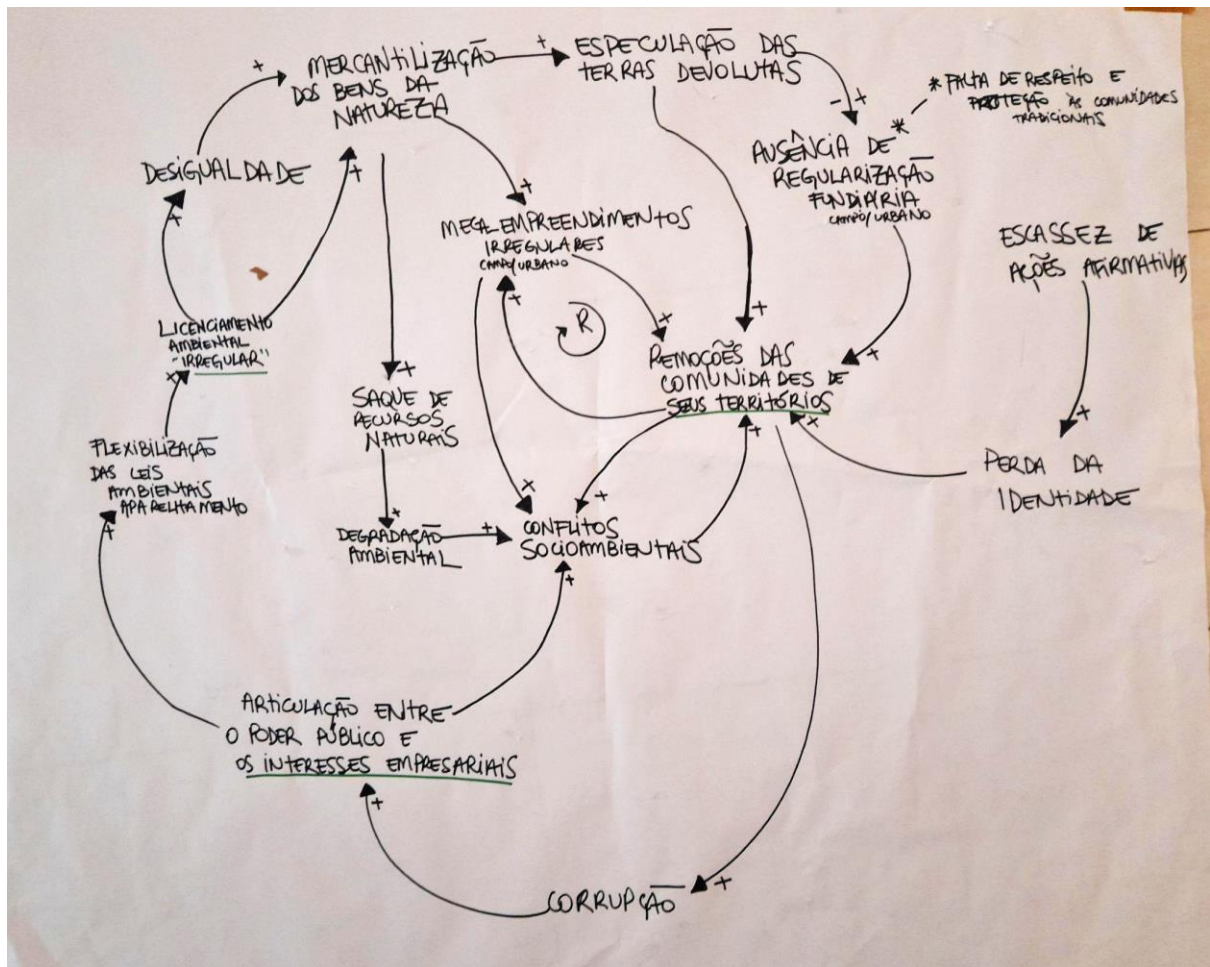 MERCANTILIZAÇÃO
DOS BENS DA
NATUREZA
+
ESPECULAÇÃO DAS
TERRAS DEVOLUTAS
+
- +
* FALTA DE RESPEITO E
PROTEÇÃO ÀS COMUNIDADES
TRADICIONAIS
AUSÊNCIA DE *
REGULARIZAÇÃO
FUNDIÁRIA
CAMPO/URBANO
DESIGUALDADE
+
+
+
MEGA-EMPREENDIMENTOS
IRREGULARES
CAMPO/URBANO
+
ESCASSEZ DE
AÇÕES AFIRMATIVAS
LICENCIAMENTO
AMBIENTAL
"IRREGULAR"
+
R
+
+
+
REMOÇÕES DAS
COMUNIDADES DE
SEUS TERRITÓRIOS
+
SAQUE DE
RECURSOS
NATURAIS
+
+
+
+
FLEXIBILIZAÇÃO
DAS LEIS
AMBIENTAIS
APARELHAMENTO
+
PERDA DA
IDENTIDADE
+
DEGRADAÇÃO
AMBIENTAL
+
+
+
CONFLITOS
SOCIOAMBIENTAIS
+
ARTICULAÇÃO ENTRE
O PODER PÚBLICO E
OS INTERESSES EMPRESARIAIS
+
CORRUPÇÃO
+